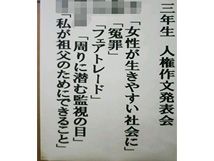 三年生 人権作文発表会
「女性が生きやすい社会に」
「冤罪」
「フェアトレード」
「周りに潜む監視の目」
「私が祖父のためにできること」